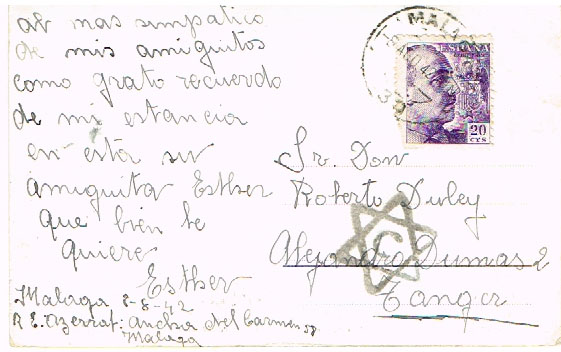 al mas simpatico
de mis amiguitos
como grato recuerdo
de mi estancia
en esta su
amiguita Esther
que bien te
quiere
Esther
Malaga 2-8-42
R E. Azerrat: Ancha del Carmen 58
Malaga
MALAGA
ESPAÑA
20
CTS
Sr. Don
Roberto Duley
Alejandro Dumas 2
Tanger
C